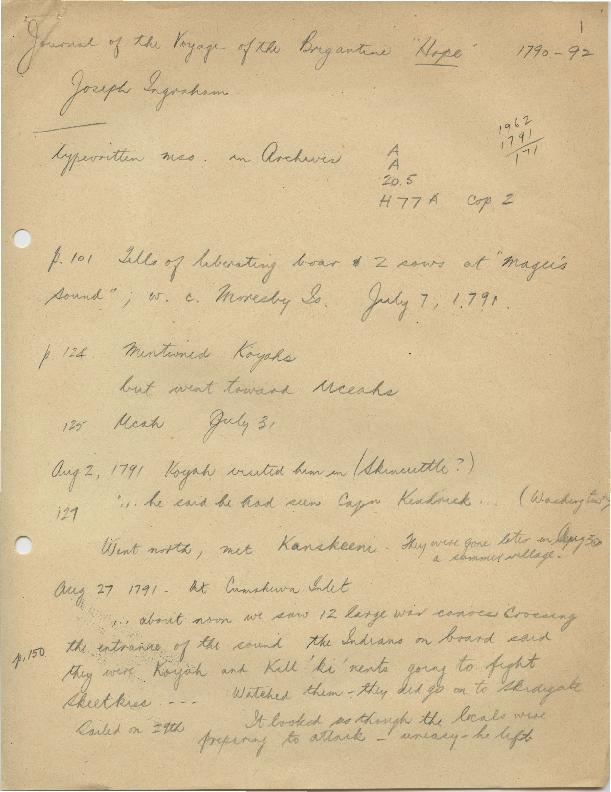 1
Journal of the Voyage of the Brigantine "Hope" 1790-92
Joseph Ingraham
1962
1791
171
typewritten mss. in Archives
A
A
20.5
H77A Cop 2
p. 101 Tells of liberating boar & 2 sows at "Magee's
Sound"; w. c. Moresby Is. July 7, 1791.
p. 124 Mentioned Koyahs
but went toward Uceahs
125 Ucah July 31
Aug 2, 1791 Koyah visited him in (Skincuttle?)
127 "... he said he had seen Capn Kendrick ... (Washington)
Went north, met Kanskeeni. They were gone later in
a summer village.
Aug 27 1791 - At Cumshewa Inlet
... about noon we saw 12 large war canoes crossing
p. 150 the entrance of the sound the Indians on board said
they were Koyah and Kill 'ki' nents going to fight
Skeetkiss ---- Watched them - they did go on to Skidegate
Sailed on 29th It looked as though the locals were
preparing to attack - uneasy - he left